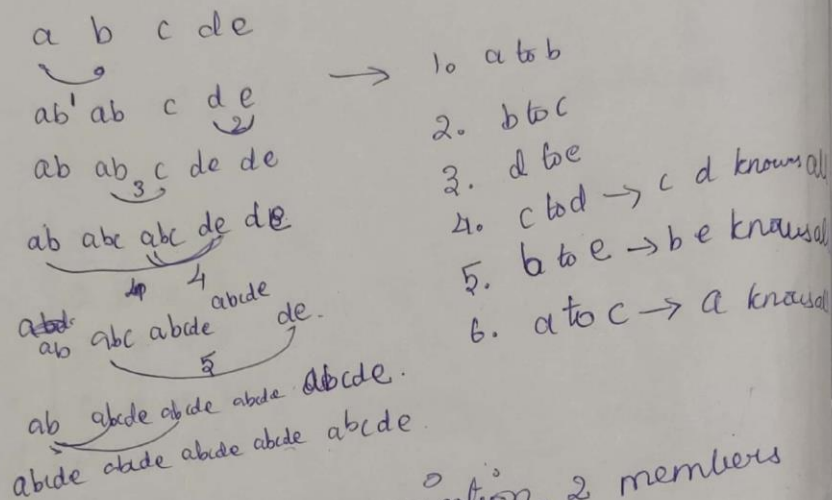 a b c d e
ab ab c d e
1
2
ab ab c de de
3
ab abc abc de de
4
ab abc abcde abcde de.
5
ab abcde abcde abcde abcde.
abcde abcde abcde abcde abcde
→ 1. a to b
2. b to c
3. d to e
4. c to d → c d knows all
5. b to e → b e knows al
6. a to c → a knows al
2 members